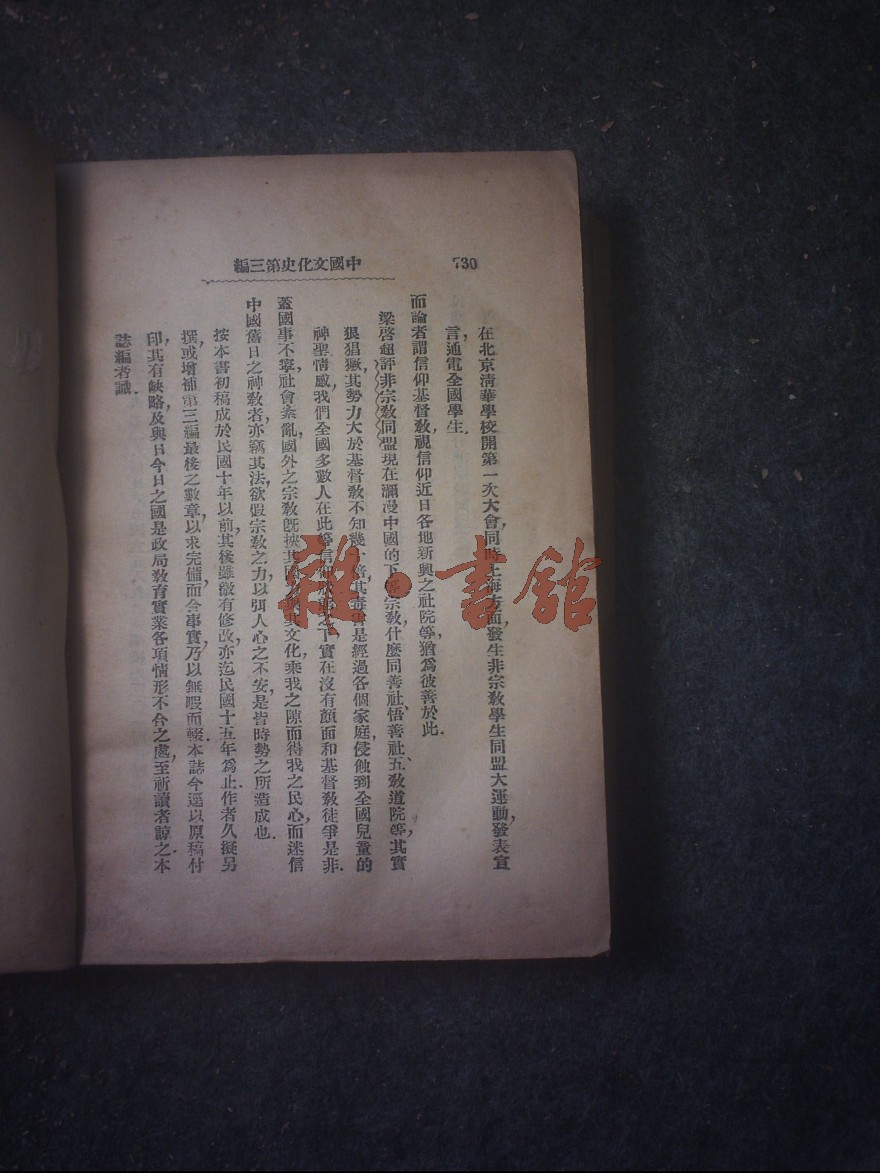 730
中國文化史第三編
在北京淸華學校開第一次大會,同時上海方面發生非宗敎學生同盟大運動,發表宣
言,通電全國學生.
而論者謂信仰基督敎,視信仰近日各地新興之社院等,猶爲彼善於此.
梁啓超評非宗敎同盟現在瀰漫中國的下等宗敎,什麼同善社、悟善社、五敎道院等,其實
狠猖獗,其勢力大於基督敎不知幾十倍,其毒害是經過各個家庭,侵蝕到全國兒童的
神聖情感,我們全國多數人在此等信仰狀態之下,實在沒有顏面和基督敎徒爭是非.
蓋國事不寧,社會紊亂,國外之宗敎旣挾其國力與其文化,乘我之隙而得我之民心,而迷信
中國舊日之神敎者,亦竊其法,欲假宗敎之力以弭人心之不安,是皆時勢之所造成也.
按本書初稿成於民國十年以前,其後雖微有修改,亦迄民國十五年爲止.作者久擬另
撰,或增補第三編最後之數章,以求完備,而今事實,乃以無暇而輟.本誌今逕以原稿付
印,其有缺略及與日今日之國是政局敎育實業各項情形不合之處,至祈讀者諒之.本
誌編者識.
雜·書館